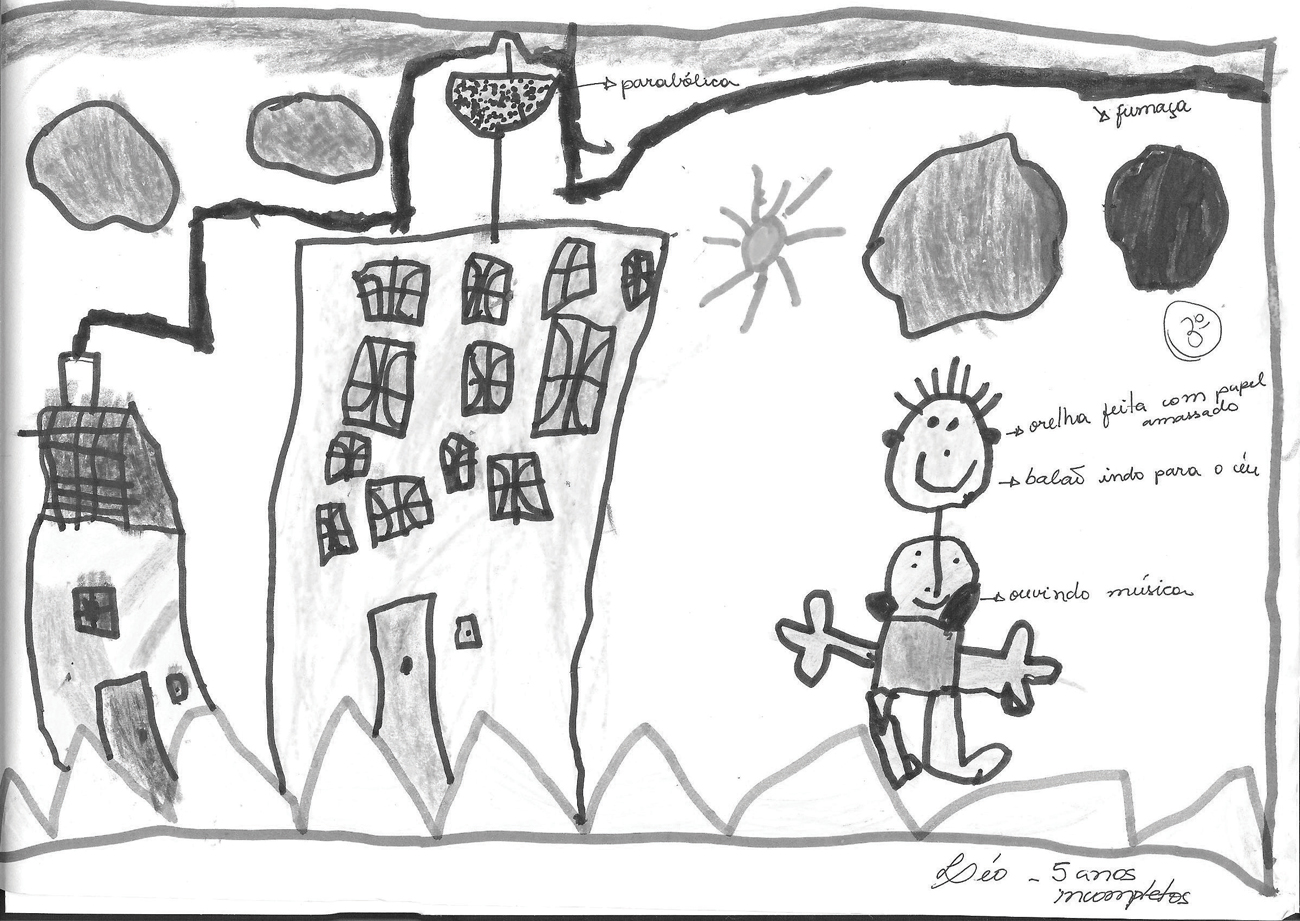 parabólica
fumaça
3º
orelha feita com papel
amassado
balão indo para o céu
ouvindo música
Léo - 5 anos
incompletos